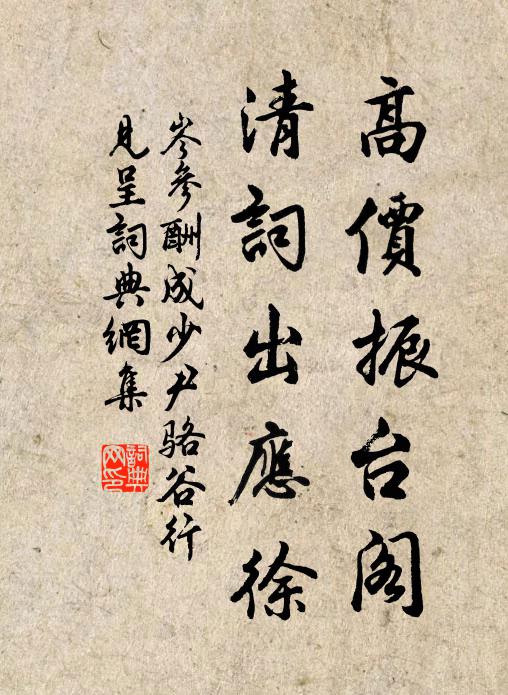 高價振台閣
清詞出應徐
岑參酬成少尹骆谷行
見呈詞典網集
詞典
网印